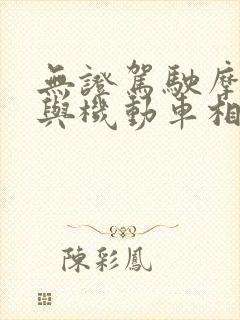 無證駕駛摩
與機動車相
陳彩鳳